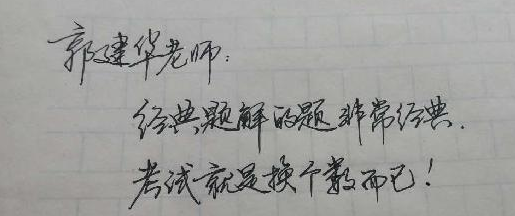 郭建华老师:
经典题解的题非常经典.
考试就是换个数而已!